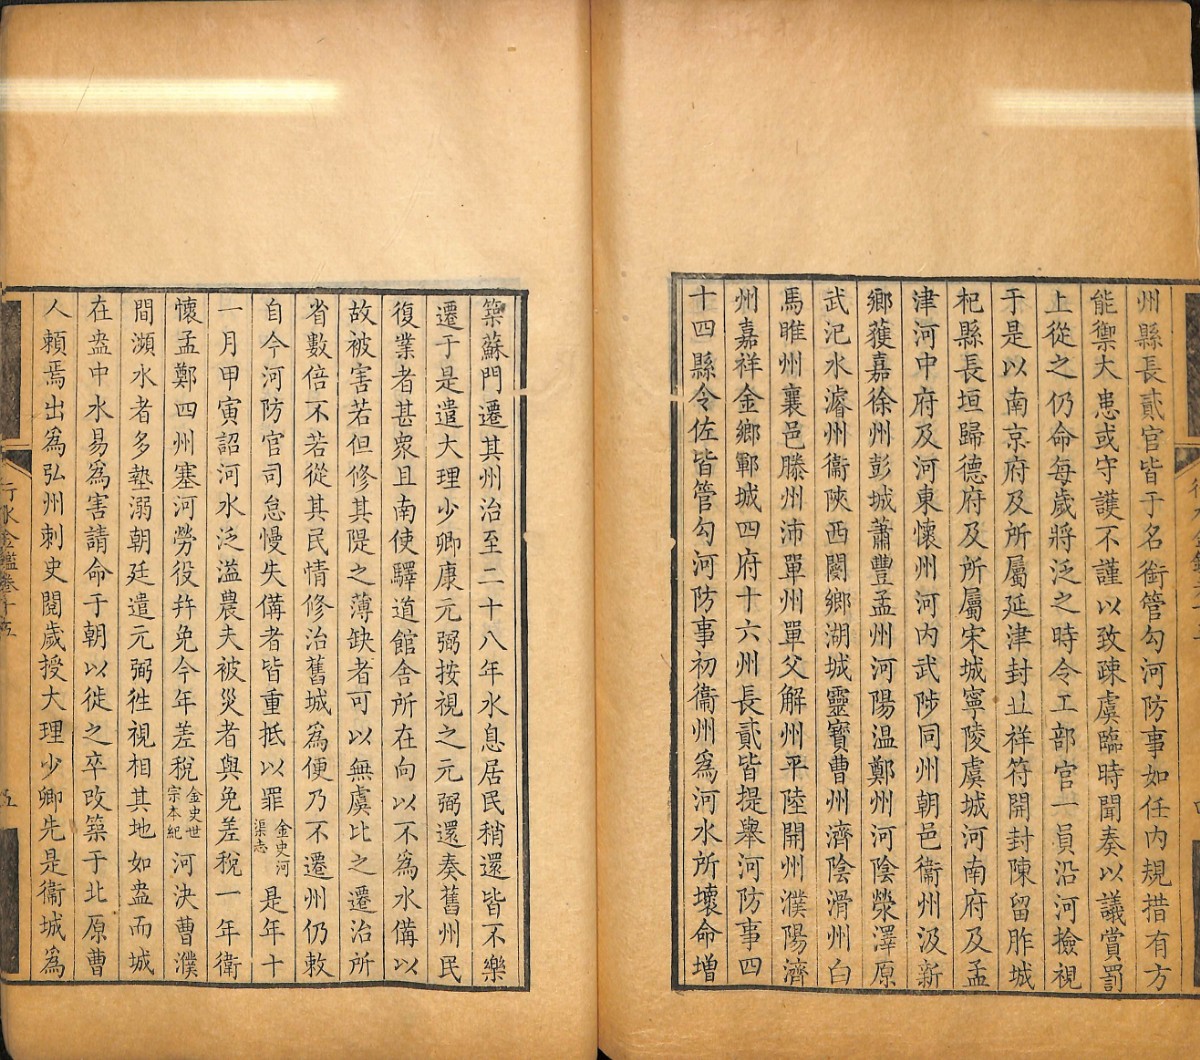 州縣長貳官皆于名銜管勾河防事如任内規措有方
能禦大患或守護不謹以致疎虞臨時聞奏以議賞罰
上從之仍命每歲將泛之時令工部官一員沿河檢視
于是以南京府及所屬延津封丘祥符開封陳留胙城
杞縣長垣歸德府及所屬宋城寧陵虞城河南府及孟
津河中府及河東懷州河内武陟同州朝邑衞州汲新
鄉獲嘉徐州彭城蕭豐孟州河陽温鄭州河陰滎澤原
武汜水濬州衞陜西閿鄉湖城靈寶曹州濟陰滑州白
馬睢州襄邑滕州沛單州單父解州平陸開州濮陽濟
州嘉祥金鄉鄆城四府十六州長貳皆提舉河防事四
十四縣令佐皆管勾河防事初衞州爲河水所壞命增
築蘇門遷其州治至二十八年水息居民稍還皆不樂
遷于是遣大理少卿康元弼按視之元弼還奏舊州民
復業者甚衆且南使驛道館舍所在向以不爲水備以
故被害若但修其隄之薄缺者可以無虞比之遷治所
省數倍不若從其民情修治舊城爲便乃不遷州仍敕
自今河防官司怠慢失備者皆重抵以罪金史河渠志是年十
一月甲寅詔河水泛溢農夫被災者與免差稅一年衞
懷孟鄭四州塞河勞役幷免今年差稅金史世宗本紀河決曹濮
間瀕水者多墊溺朝廷遣元弼徃視相其地如盎而城
在盎中水易爲害請命于朝以徙之卒改築于北原曹
人頼焉出爲弘州刺史閱歲授大理少卿先是衞城爲
行水金鑑卷十五
五